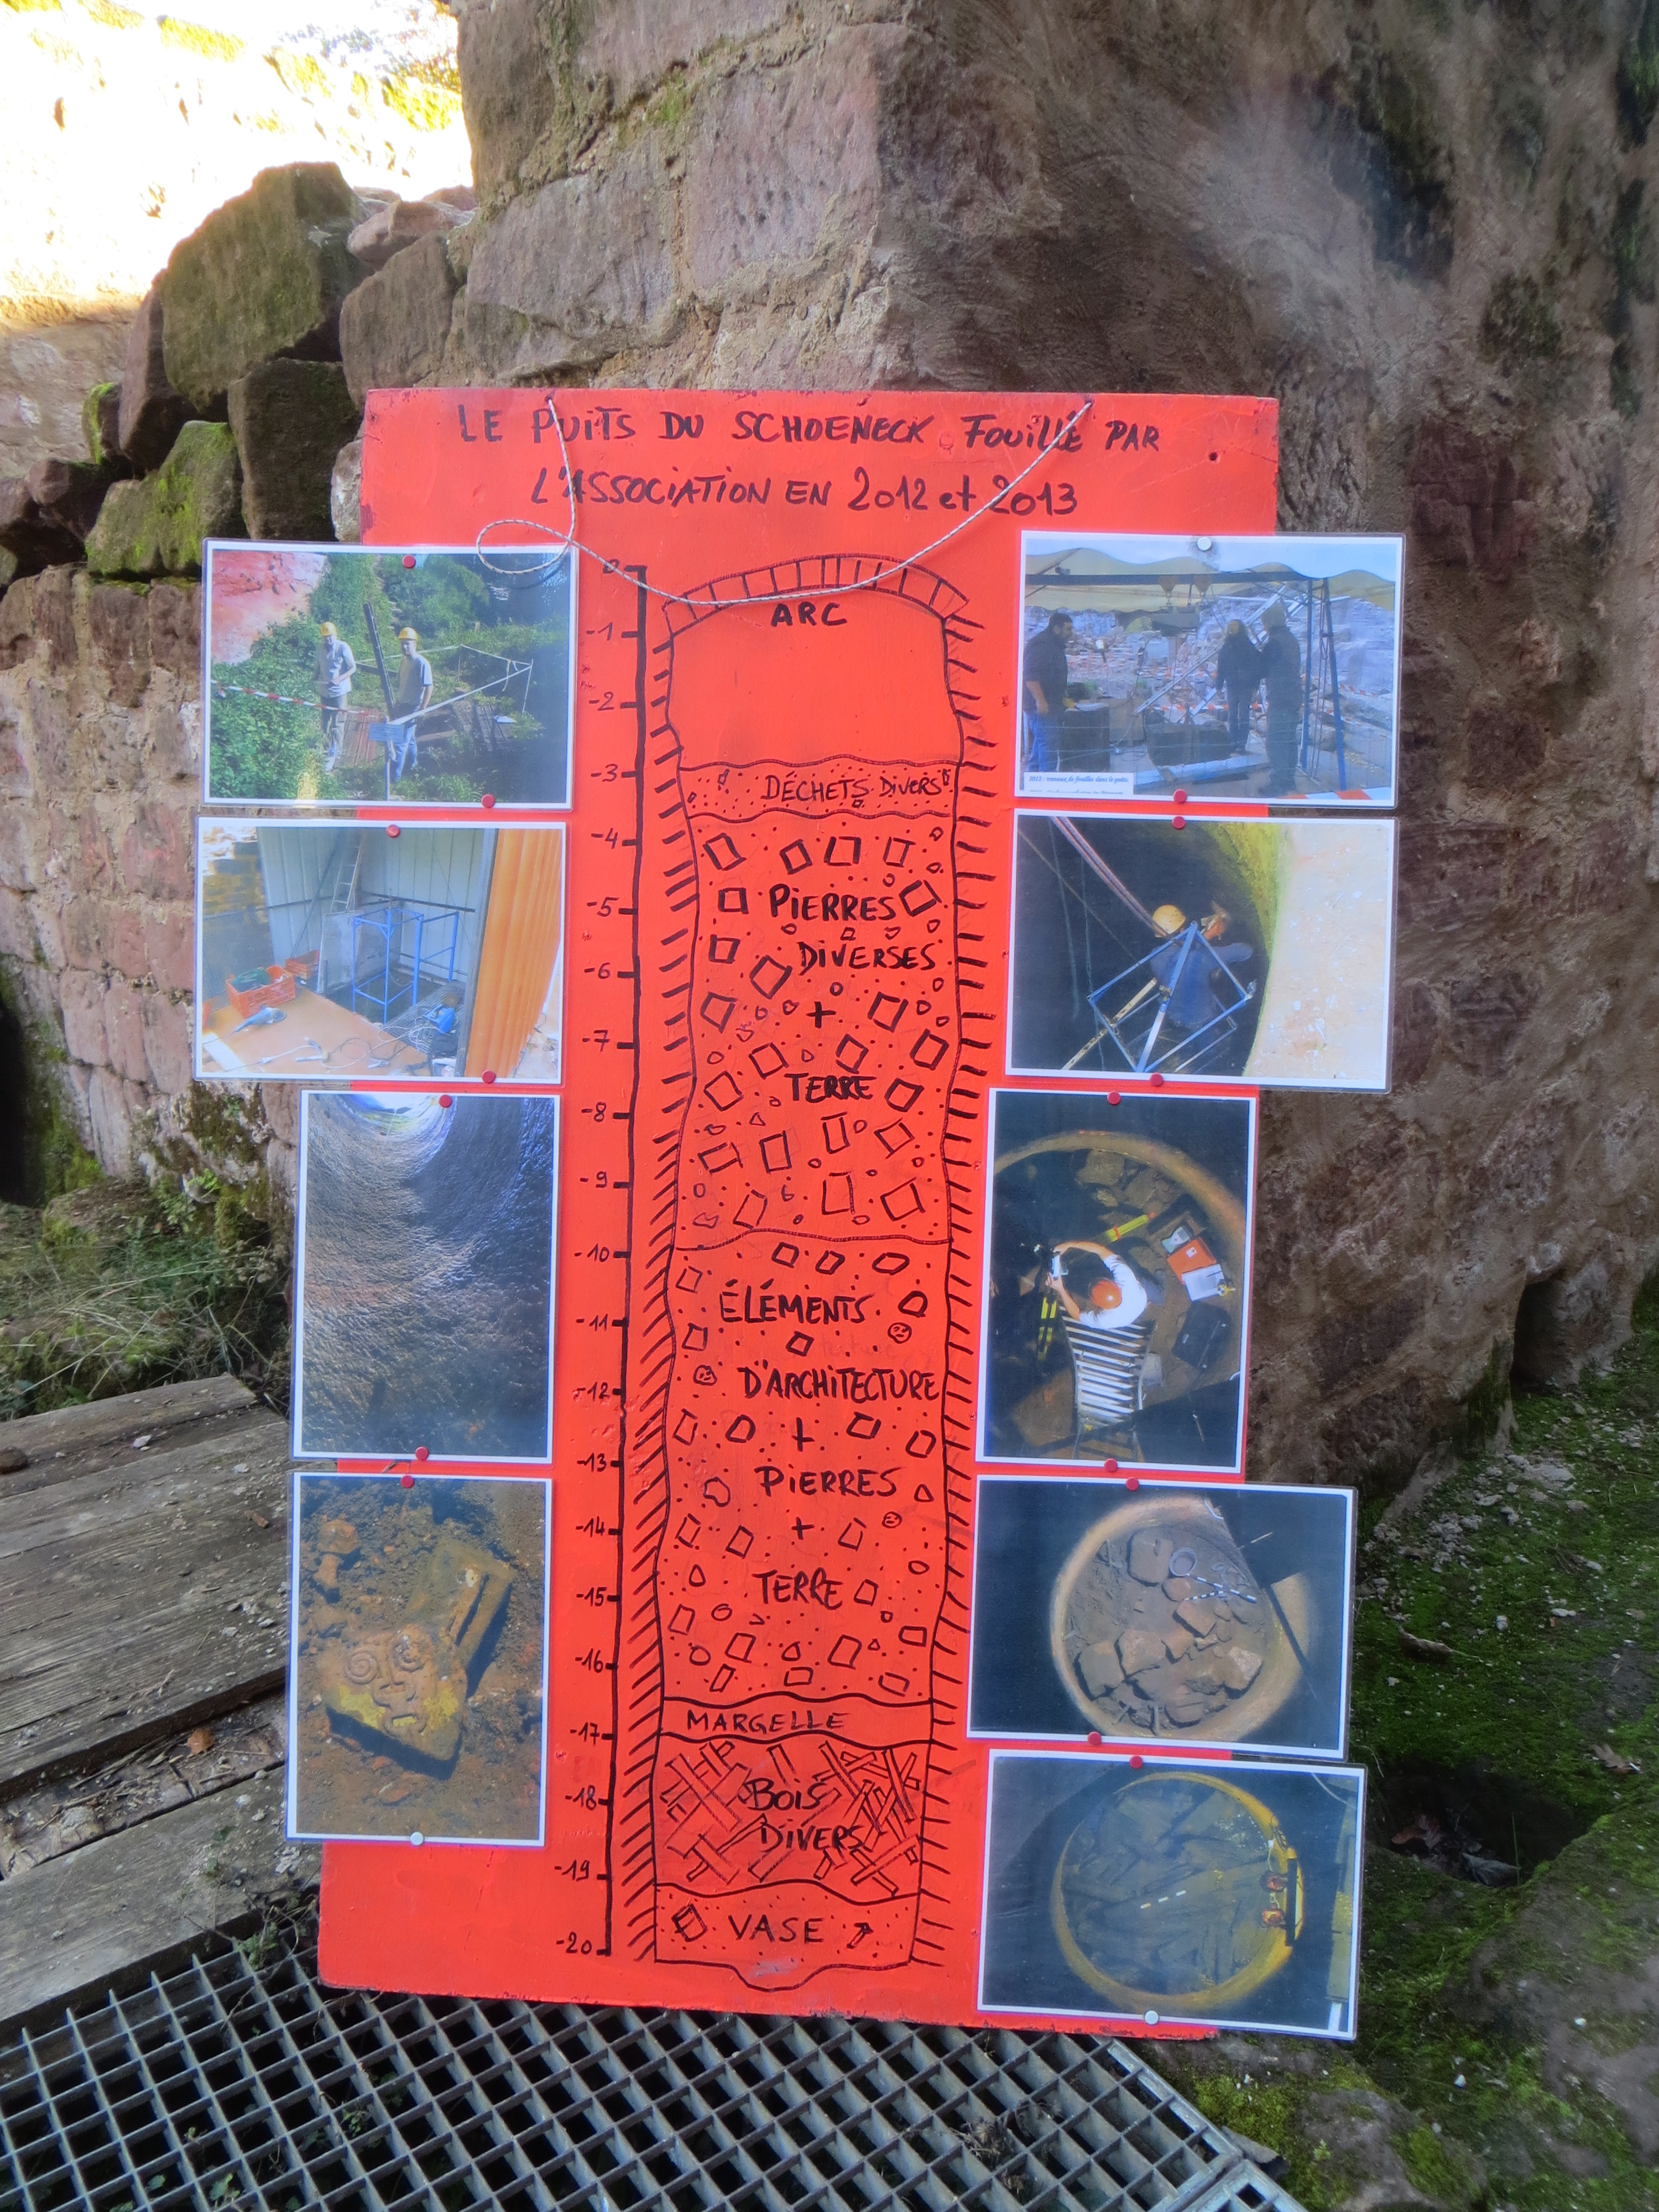 LE PUITS DU SCHOENECK FOUILLÉ PAR
L'ASSOCIATION EN 2012 et 2013
0
ARC
-1
-2
-3
DÉCHETS DIVERS
-4
PIERRES
-5
DIVERSES
-6
+
-7
TERRE
-8
-9
-10
ÉLÉMENTS
-11
D'ARCHITECTURE
-12
+
-13
PIERRES
-14
+
TERRE
-15
-16
MARGELLE
-17
BOIS
-18
DIVERS
-19
VASE
-20
2012 : travaux de fouilles dans le puits.